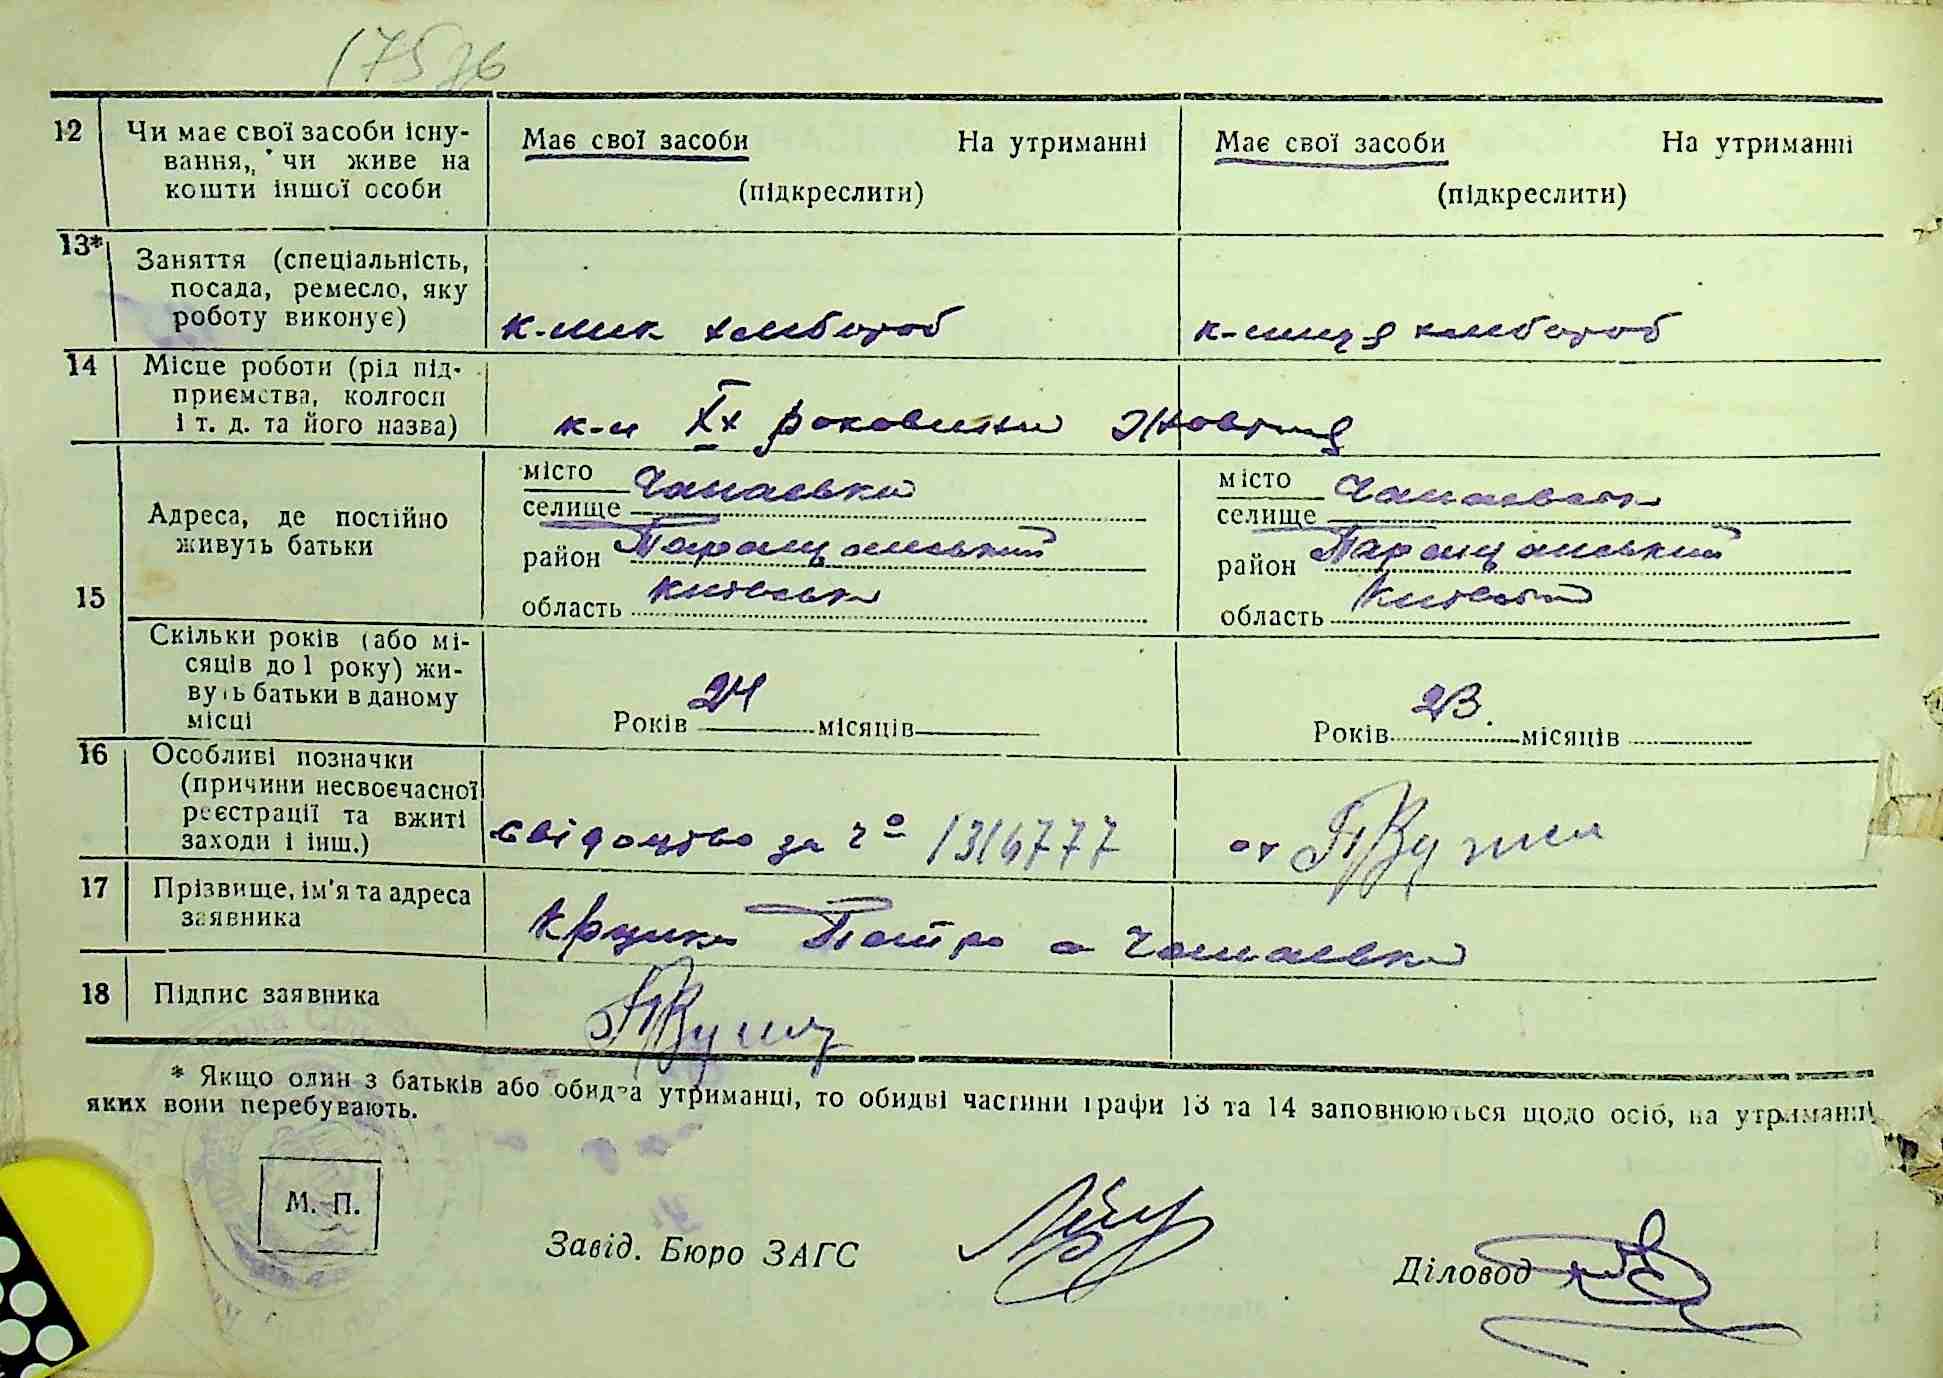 175
12 Чи має свої засоби існу-
вання, чи живе на
кошти іншої особи
Має свої засоби На утриманні
(підкреслити)
Має свої засоби На утриманні
(підкреслити)
13* Заняття (спеціальність,
посада, ремесло, яку
роботу виконує)
к-ник хлібороб
к-ниця хлібороб
14 Місце роботи (рід під-
приємства, колгосп
і т. д. та його назва)
к-п ХХ роковини Жовтня
15 Адреса, де постійно
живуть батьки
місто
селище Чапаєвка
район Таращанський
область Київськ
місто
селище Чапаєвка
район Таращанський
область Київськ
Скільки років (або мі-
сяців до 1 року) жи-
вуть батьки в даному
місці
Років 24 місяців
Років 23. місяців
16 Особливі позначки
(причини несвоєчасної
реєстрації та вжиті
заходи і інш.)
свідоцтво за №
17 Прізвище, ім'я та адреса
заявника
Петро с Чапаєвка
18 Підпис заявника
* Якщо один з батьків або обидва утриманці, то обидві частини графи 13 та 14 заповнюються щодо осіб, на утриманні
яких вони перебувають.
М. П.
Завід. Бюро ЗАГС
Діловод